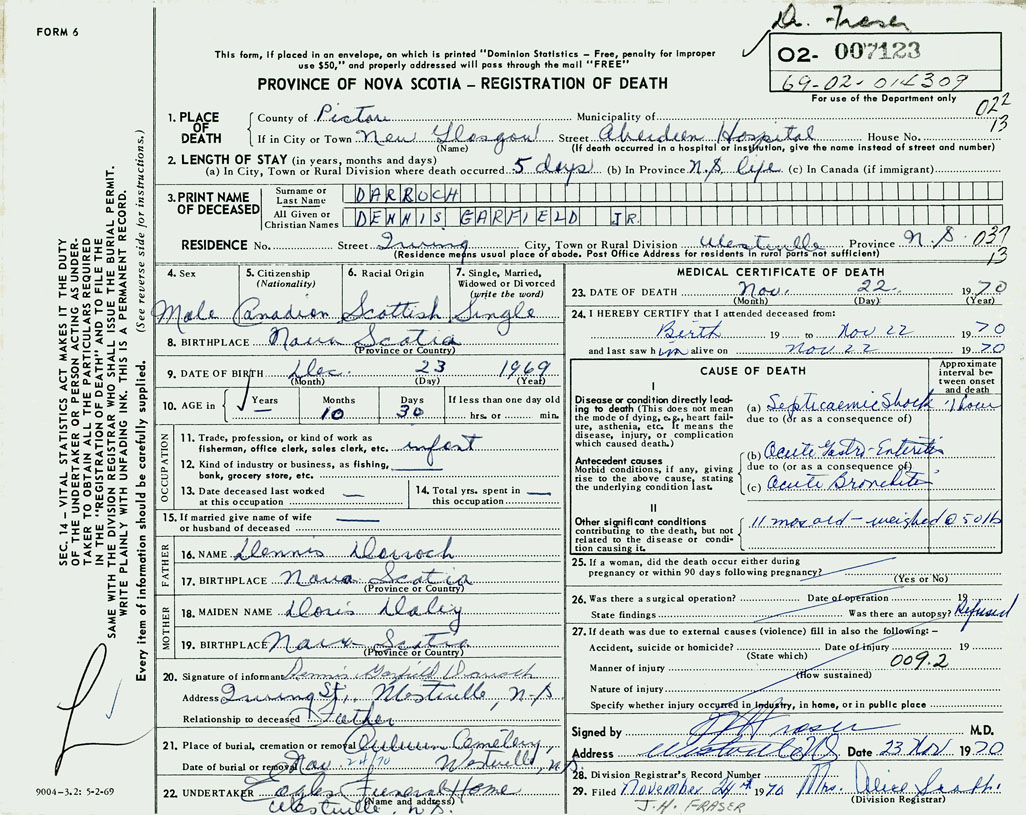 Dr. Fraser
FORM 6
02- 007123
69-02-014309
For use of the Department only
This form, if placed in an envelope, on which is printed "Dominion Statistics – Free, penalty for improper
use $50," and properly addressed will pass through the mail "FREE"
PROVINCE OF NOVA SCOTIA – REGISTRATION OF DEATH
022
13
1. PLACE OF DEATH
County of Pictou Municipality of
If in City or Town New Glasgow Street Aberdeen Hospital House No.
(Name) (If death occurred in a hospital or institution, give the name instead of street and number)
2. LENGTH OF STAY (in years, months and days)
(a) In City, Town or Rural Division where death occurred 5 days (b) In Province N.S. life (c) In Canada (if immigrant)
3. PRINT NAME OF DECEASED
Surname or Last Name DARROCH
All Given or Christian Names DENNIS GARFIELD JR.
RESIDENCE No. Street Irving City, Town or Rural Division Westville Province N.S. 037
13
(Residence means usual place of abode. Post Office Address for residents in rural parts not sufficient)
4. Sex Male
5. Citizenship (Nationality) Canadian
6. Racial Origin Scottish
7. Single, Married, Widowed or Divorced (write the word) Single
8. BIRTHPLACE Nova Scotia
(Province or Country)
9. DATE OF BIRTH Dec. 23 1969
(Month) (Day) (Year)
10. AGE in Years Months 10 Days 30 If less than one day old hrs. or min.
OCCUPATION
11. Trade, profession, or kind of work as
fisherman, office clerk, sales clerk, etc. infant
12. Kind of industry or business, as fishing,
bank, grocery store, etc. —
13. Date deceased last worked
at this occupation —
14. Total yrs. spent in
this occupation —
15. If married give name of wife
or husband of deceased —
FATHER
16. NAME Dennis Darroch
17. BIRTHPLACE Nova Scotia
(Province or Country)
MOTHER
18. MAIDEN NAME Doris Daley
19. BIRTHPLACE Nova Scotia
(Province or Country)
20. Signature of informant Dennis Garfield Darroch
Address Irving St., Westville, N.S.
Relationship to deceased Father
21. Place of burial, cremation or removal Auburn Cemetery,
Date of burial or removal Nov. 24/70 Westville, N.S.
22. UNDERTAKER Eagles Funeral Home
(Name and address)
Westville, N.S.
MEDICAL CERTIFICATE OF DEATH
23. DATE OF DEATH Nov. 22 1970
(Month) (Day) (Year)
24. I HEREBY CERTIFY that I attended deceased from:
Birth 19 to Nov 22 1970
and last saw him alive on Nov 22 1970
CAUSE OF DEATH
Approximate interval between onset and death
I
Disease or condition directly leading to death (This does not mean the mode of dying, e.g., heart failure, asthenia, etc. It means the disease, injury, or complication which caused death.)
(a) Septicaemic Shock 1 hour
due to (or as a consequence of)
Antecedent causes
Morbid conditions, if any, giving rise to the above cause, stating the underlying condition last.
(b) Acute Gastro-Enteritis
due to (or as a consequence of)
(c) Acute Bronchitis
II
Other significant conditions
contributing to the death, but not related to the disease or condition causing it.
11 mos old – weighed @ 50 lb
25. If a woman, did the death occur either during
pregnancy or within 90 days following pregnancy?
(Yes or No)
26. Was there a surgical operation? Date of operation 19
State findings Was there an autopsy? Refused
27. If death was due to external causes (violence) fill in also the following: –
Accident, suicide or homicide? Date of injury 19
(State which) 009.2
Manner of injury
(How sustained)
Nature of injury
Specify whether injury occurred in industry, in home, or in public place
Signed by JH Fraser M.D.
Address Westville Date 23 Nov 1970
28. Division Registrar's Record Number
29. Filed November 24th 1970 Mrs. Alice
(Division Registrar)
J.H. FRASER
SEC. 14 – VITAL STATISTICS ACT MAKES IT THE DUTY
OF THE UNDERTAKER OR PERSON ACTING AS UNDER-
TAKER TO OBTAIN ALL THE PARTICULARS REQUIRED
IN THE "REGISTRATION OF DEATH" AND TO FILE THE
SAME WITH THE DIVISION REGISTRAR WHO SHALL ISSUE THE BURIAL PERMIT.
WRITE PLAINLY WITH UNFADING INK. THIS IS A PERMANENT RECORD.
Every item of information should be carefully supplied. (See reverse side for instructions.)
9004-3.2: 5-2-69